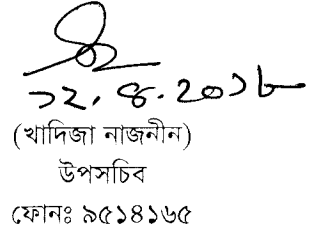 ১২.৪.২০১৮
(খাদিজা নাজনীন)
উপসচিব
ফোনঃ ৯৫১৪১৬৫